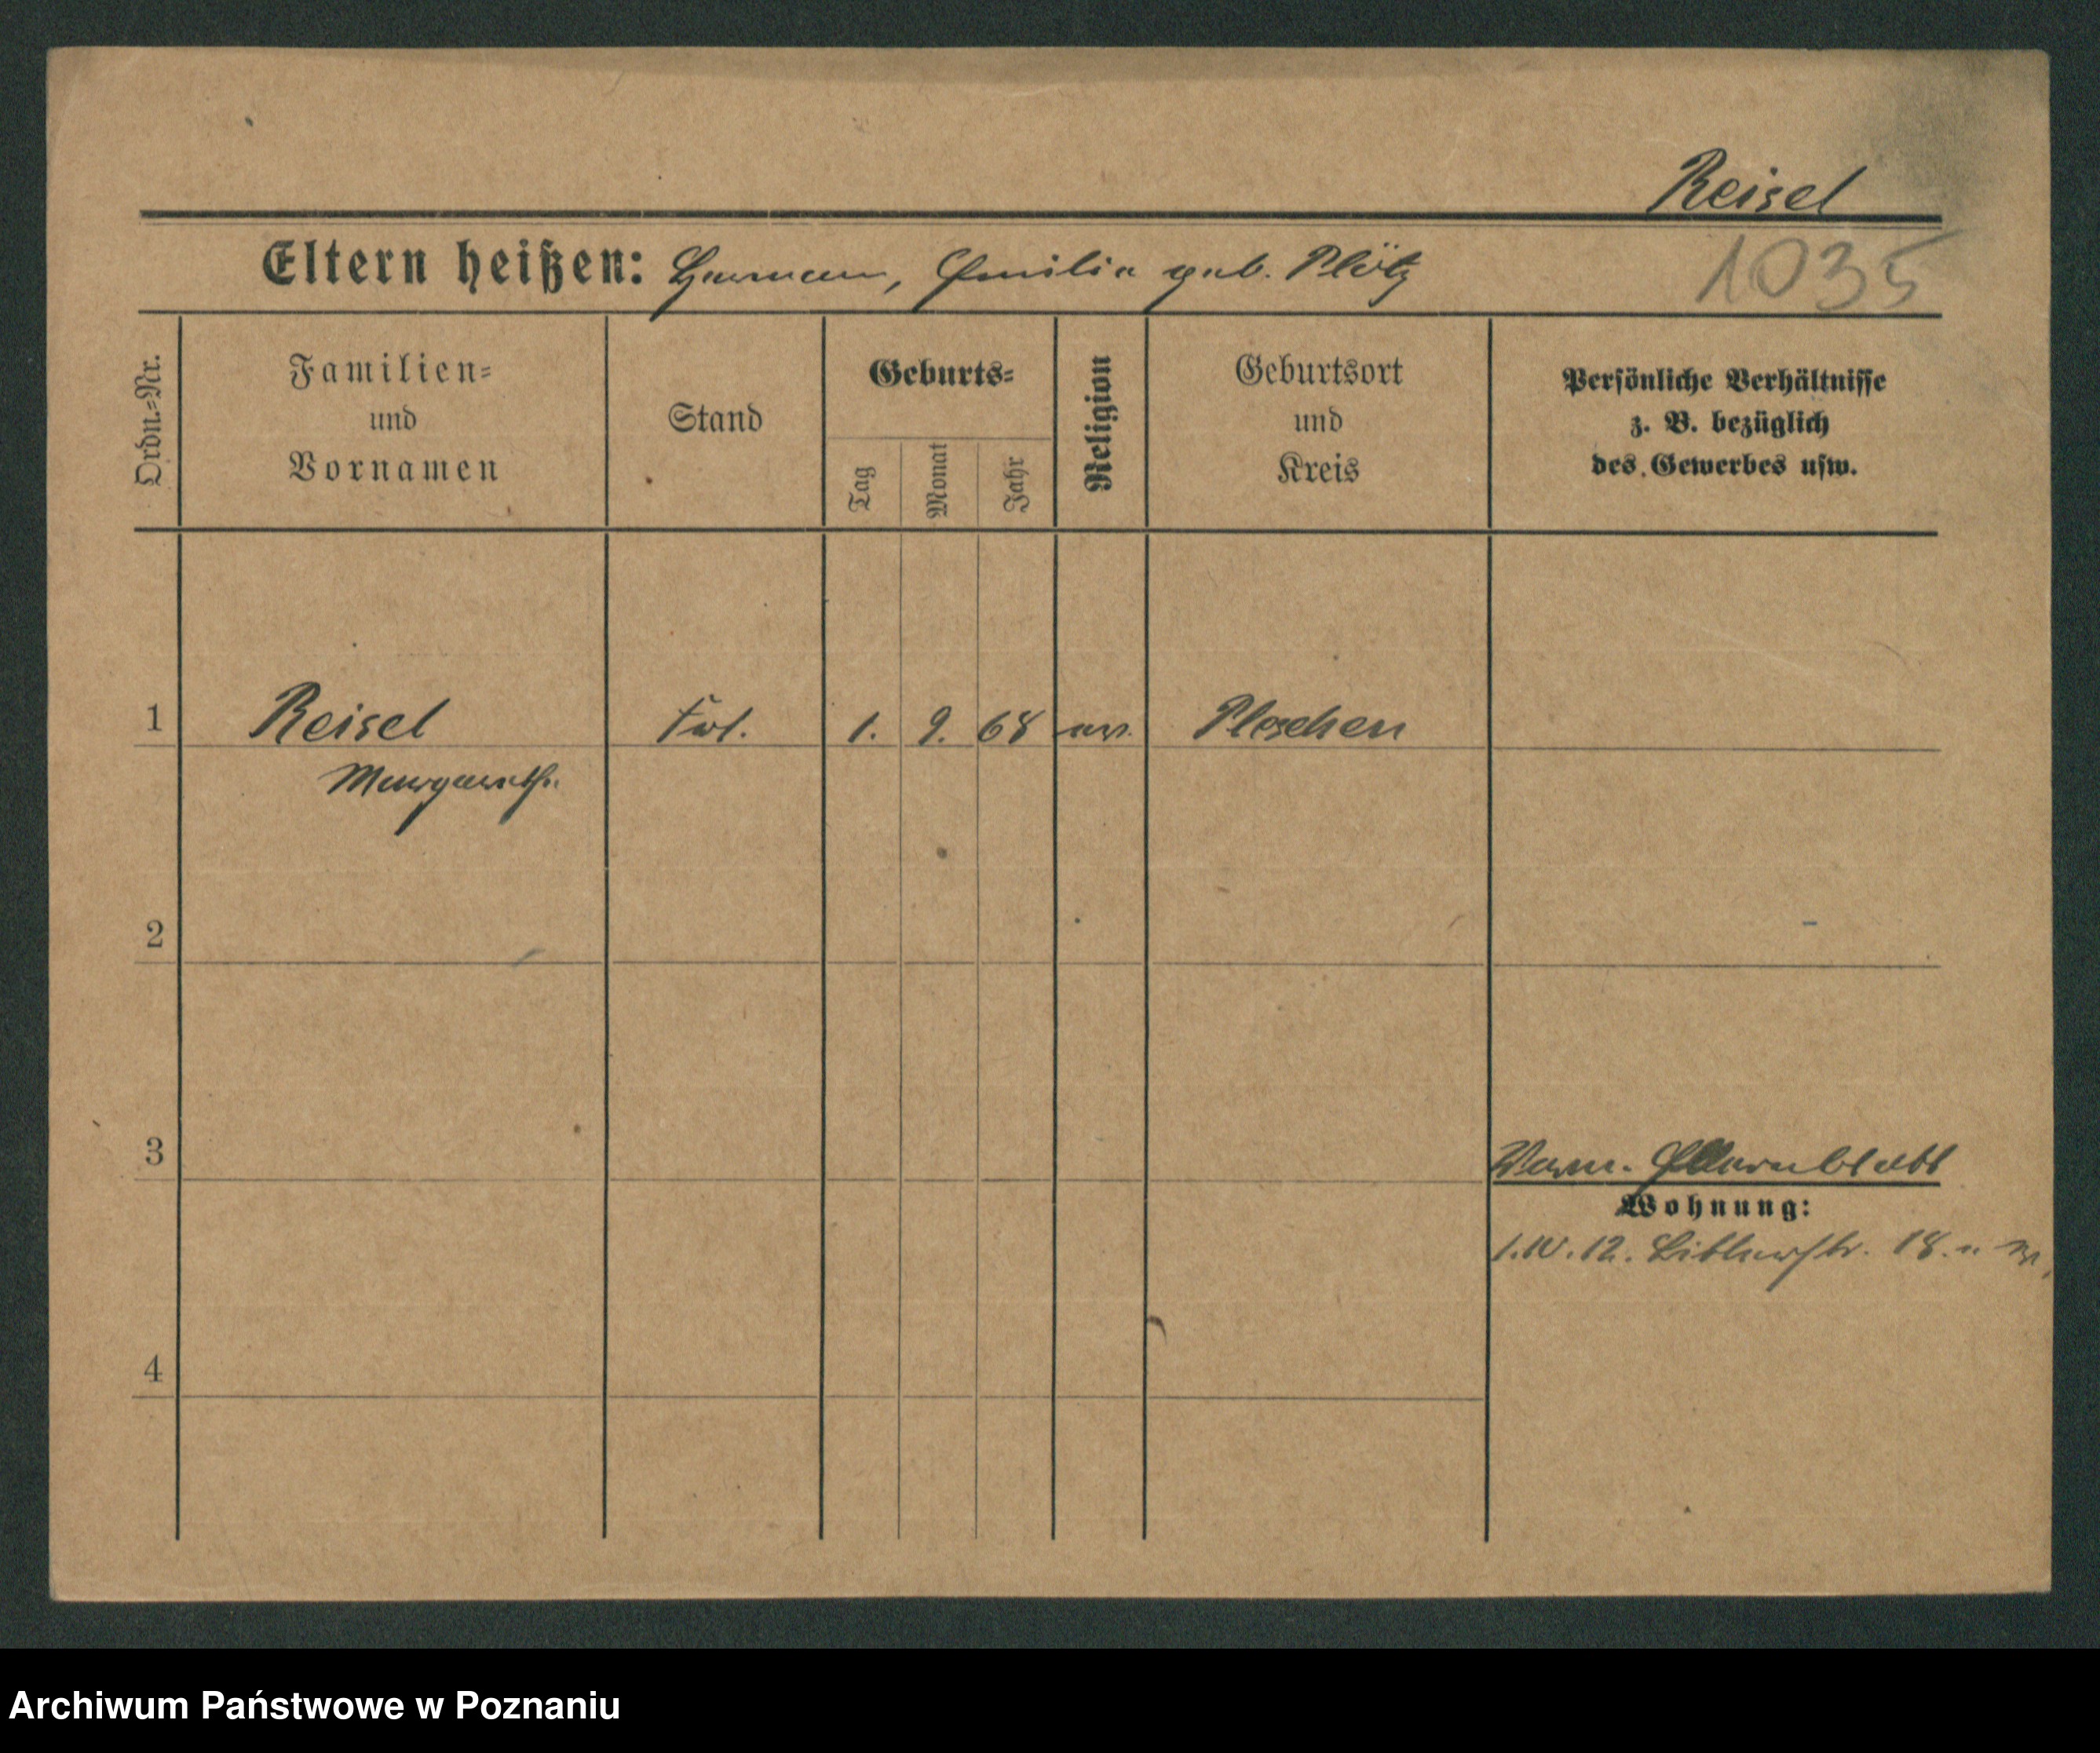 Reisel
Eltern heißen: Hermann, Emilie geb. Plötz
1035
Ordn.=Nr.
Familien=
und
Vornamen
Stand
Geburts=
Tag
Monat
Jahr
Religion
Geburtsort
und
Kreis
Persönliche Verhältnisse
z. B. bezüglich
des Gewerbes usw.
1 Reisel Frl. 1. 9. 68 ev. Pleschen
Margarethe
2
3
Wohnung:
1.10.12. 18.
4
Archiwum Państwowe w Poznaniu